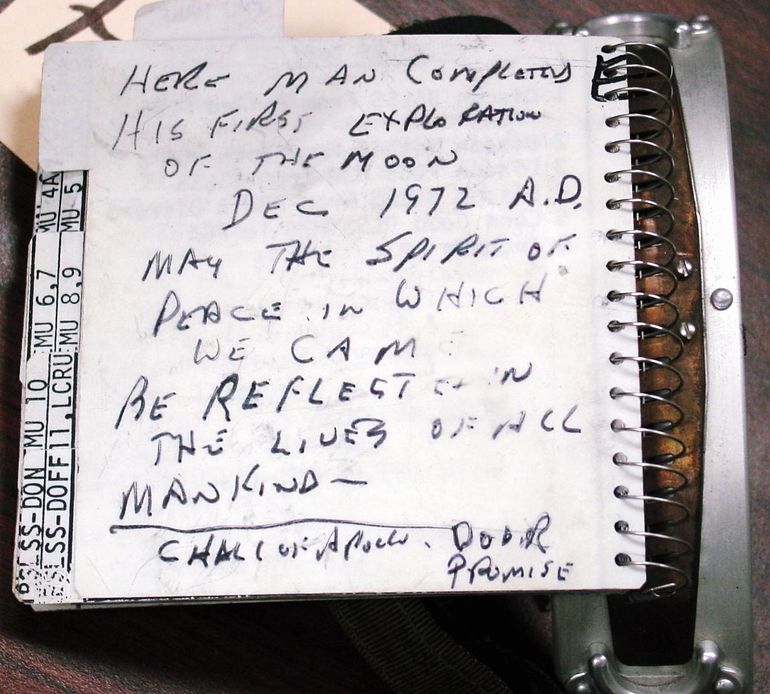 HERE MAN COMPLETED
HIS FIRST EXPLORATION
OF THE MOON
DEC 1972 A.D.
MAY THE SPIRIT OF
PEACE IN WHICH
WE CAME
BE REFLECTED IN
THE LIVES OF ALL
MANKIND —
CHALL OF APOLLO. DOOR
PROMISE
SS-DON MU 10 MU 6,7 MU 4A
SS-DOFF 11, LCRU MU 8,9 MU 5